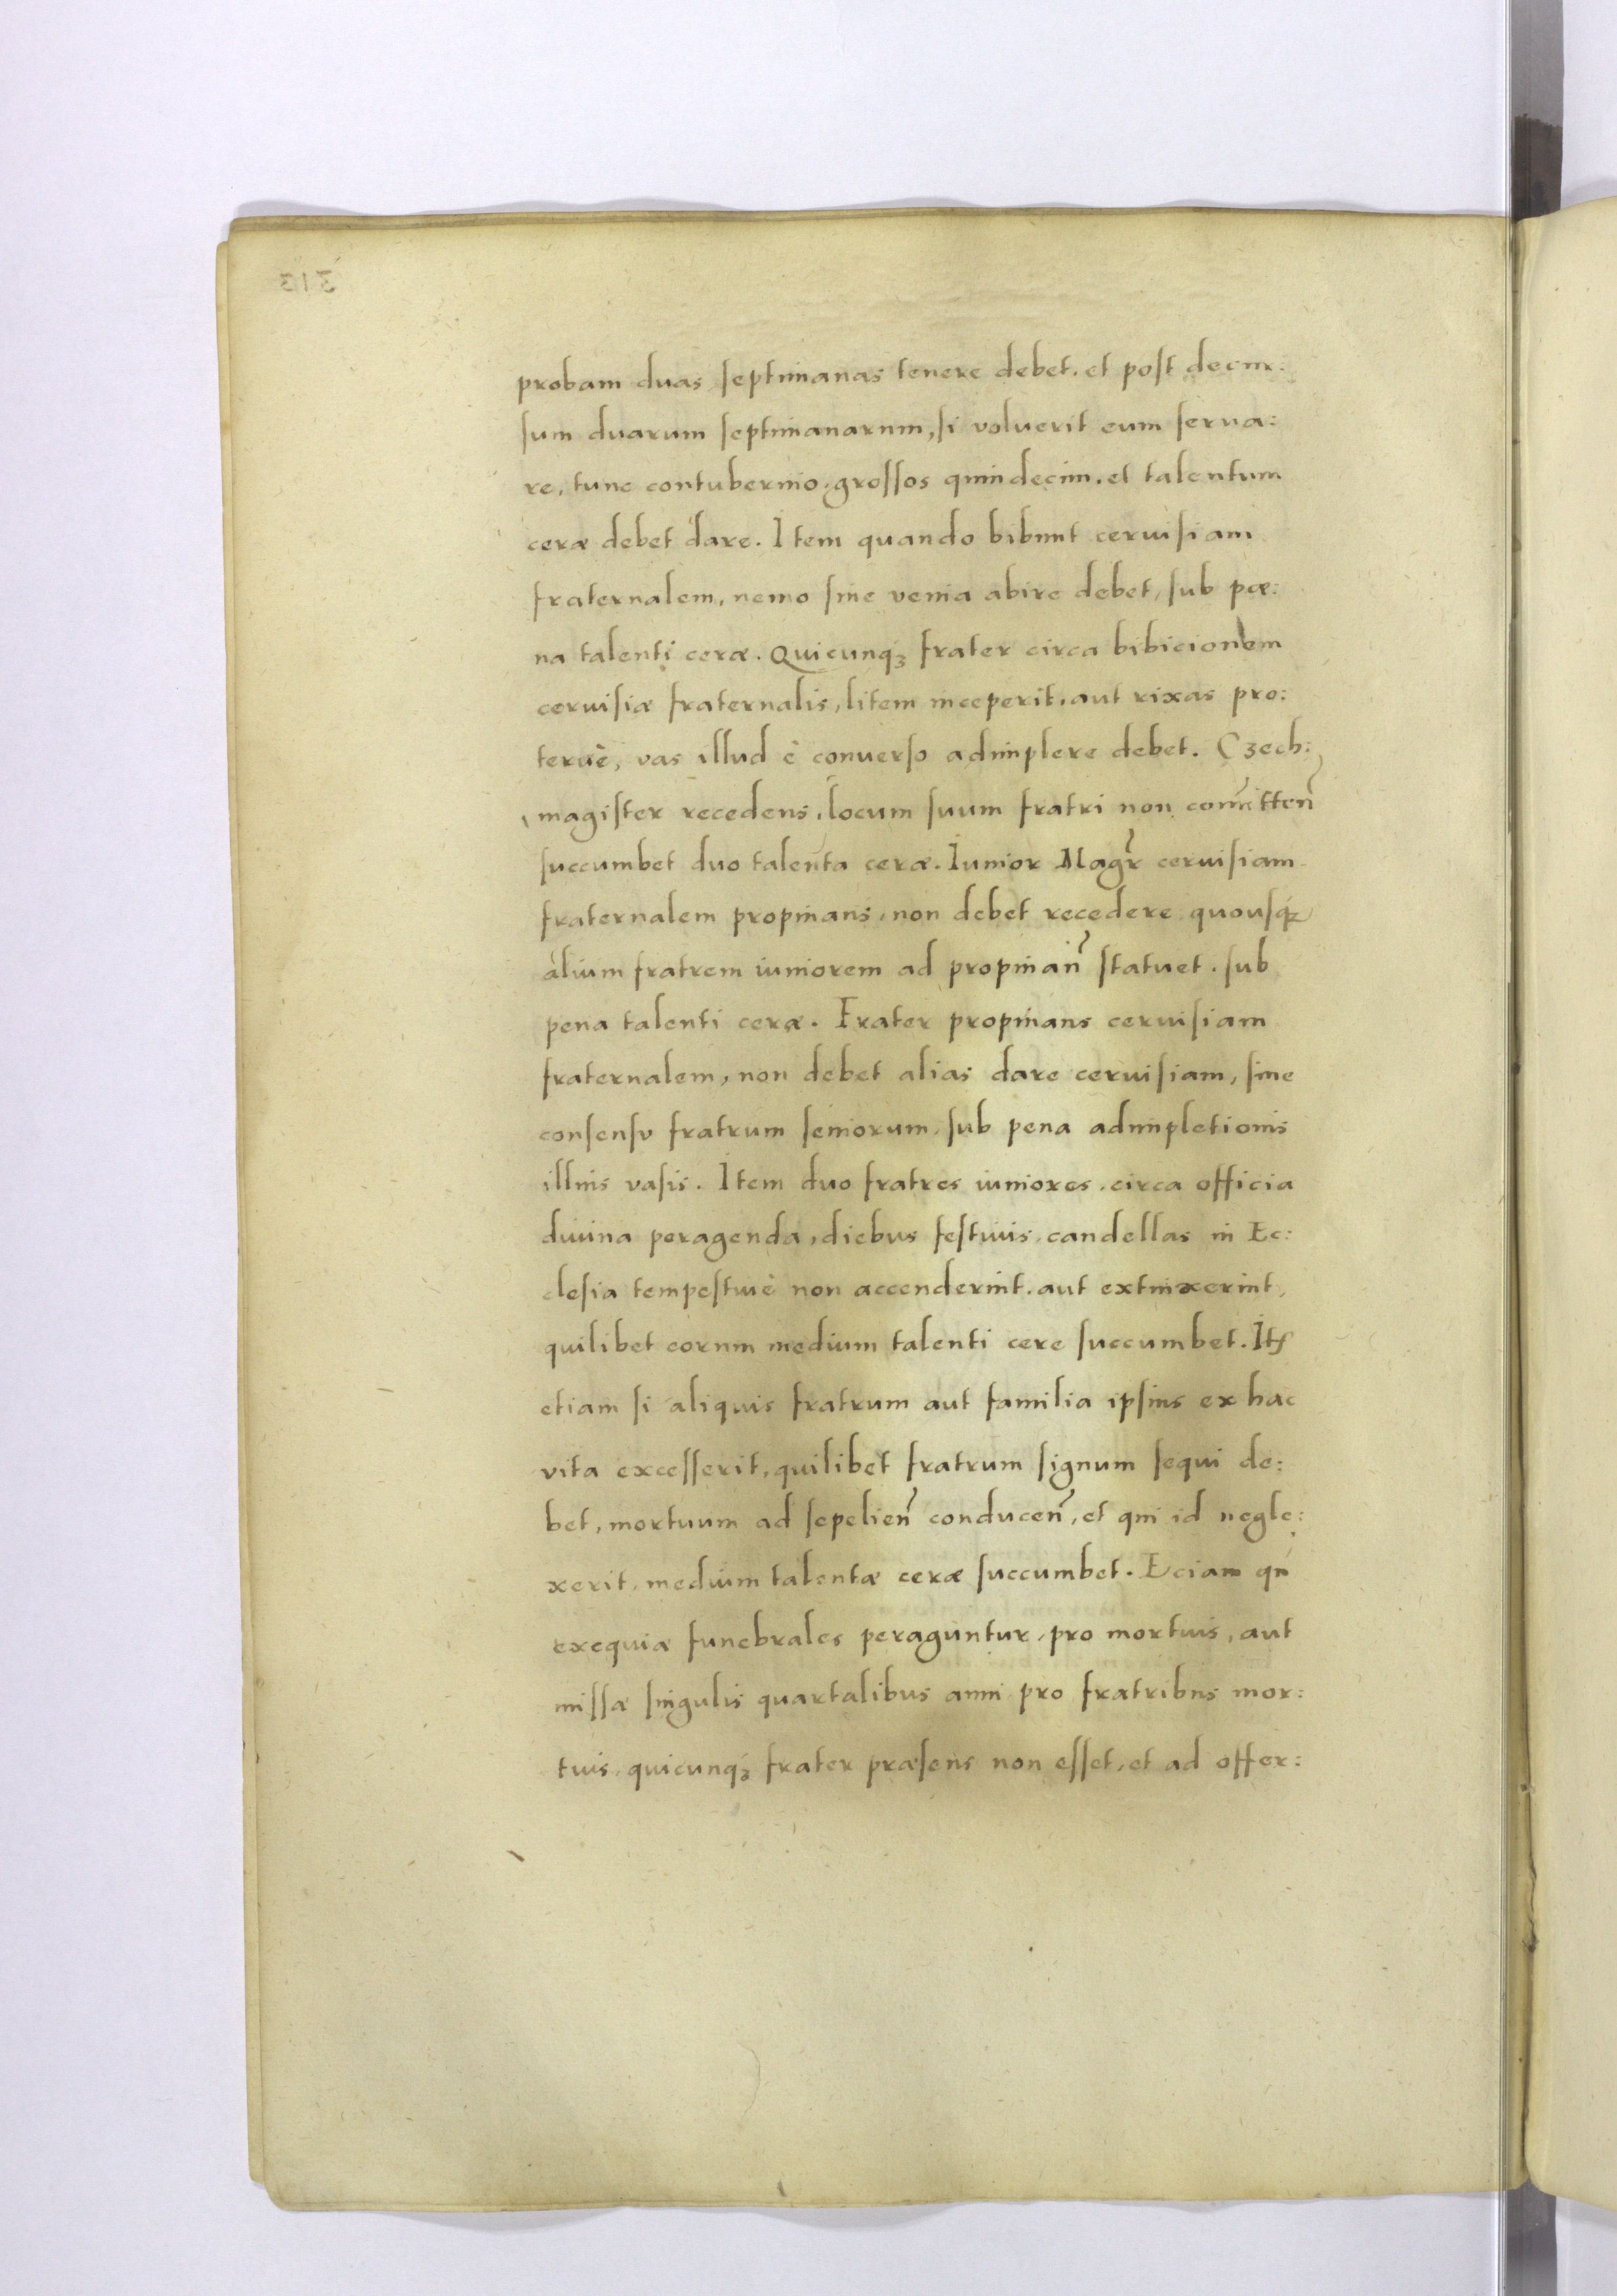 probam duas septimanas tenere debet. et post decur:
sum duarum septimanarum, si voluerit eum serua:
re, tunc contubernio, grossos quindecim. et talentum
ceræ debet dare. Item quando bibunt ceruisiam
fraternalem, nemo sine venia abire debet, sub pæ:
na talenti ceræ. Quicunqꝫ frater circa bibicionem
ceruisiæ fraternalis, litem inceperit, aut rixas pro:
teruè, vas illud è conuerso adimplere debet. Czech:
magister recedens, locum suum fratri non com̃itteñ
succumbet duo talenta ceræ. Iunior Magr̃ ceruisiam
fraternalem propinans, non debet recedere quousqꝫ
alium fratrem iuniorem ad propinañ statuet. sub
pena talenti ceræ. Frater propinans ceruisiam
fraternalem, non debet alias dare ceruisiam, sine
consensv fratrum seniorum, sub pena adimpletionis
illius vasis. Item duo fratres iuniores, circa officia
diuina peragenda, diebus festiuis, candellas in Ec:
clesia tempestiuè non accenderint. aut extinxerint,
quilibet eorum medium talenti cere succumbet. Itꝭ
etiam si aliquis fratrum aut familia ipsius ex hac
vita excesserit, quilibet fratrum signum sequi de:
bet, mortuum ad sepelieñ conduceñ, et qui id negle:
xerit, medium talentæ ceræ succumbet. Eciam qń
exequiæ funebrales peraguntur, pro mortuis, aut
missæ singulis quartalibus anni pro fratribus mor:
tuis, quicunqꝫ frater præsens non esset, et ad offer: